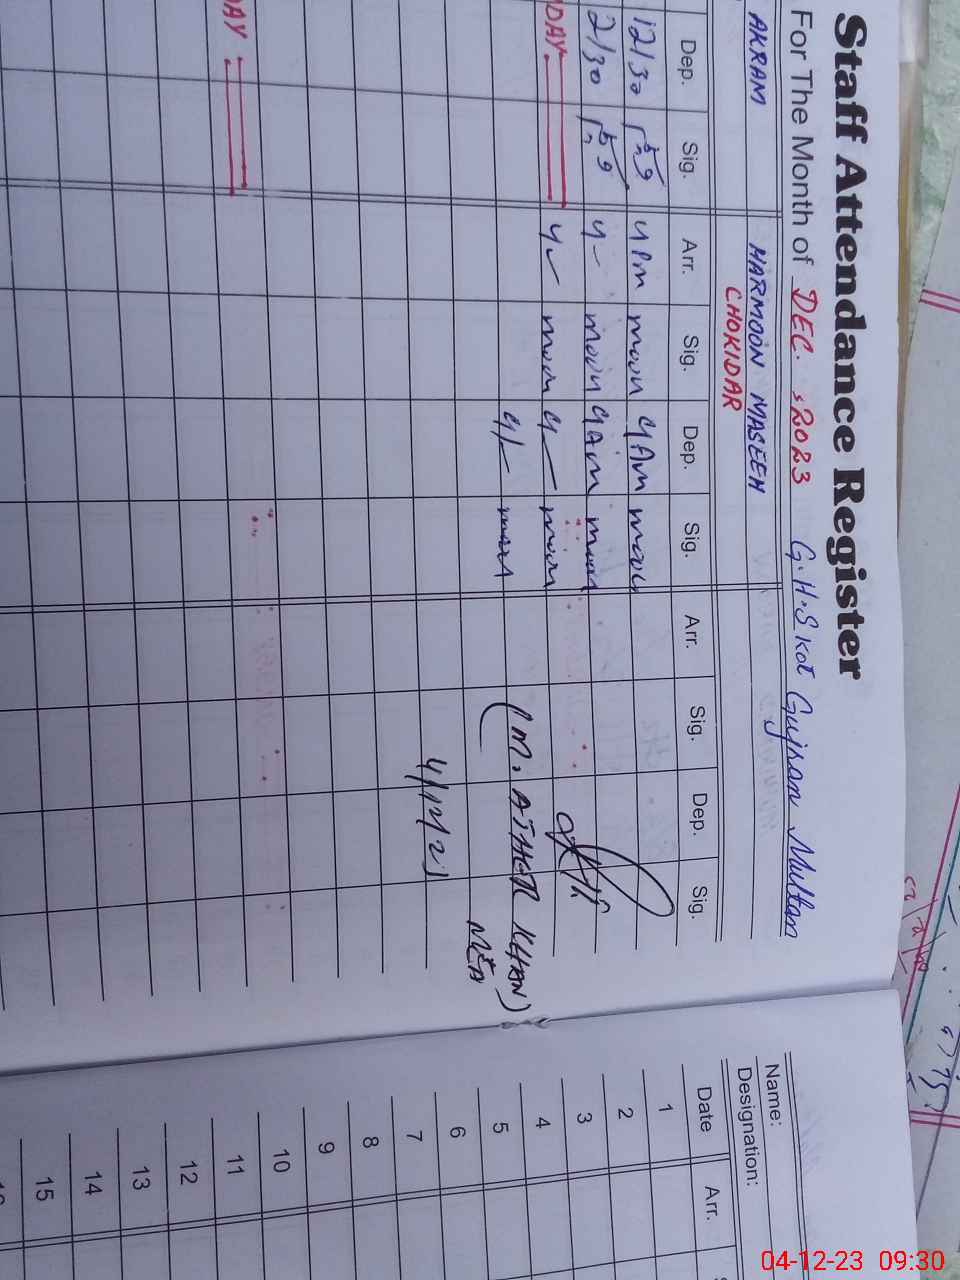 Staff Attendance Register
For The Month of DEC. ,2023 G.H.S Kot Gujran Multan
AKRAM HARMOON MASEEH
CHOKIDAR
Dep. Sig. Arr. Sig. Dep. Sig. Arr. Sig. Dep. Sig.
12/30 4 Pm moon 4 Am moon
2/30 4 moon 4 Am moon
DAY 4 moon 4 moon
4/ moon
(M. ATHER KHAN)
MEA
4/12/23
DAY
Name:
Designation:
Date Arr.
1
2
3
4
5
6
7
8
9
10
11
12
13
14
15
04-12-23 09:30